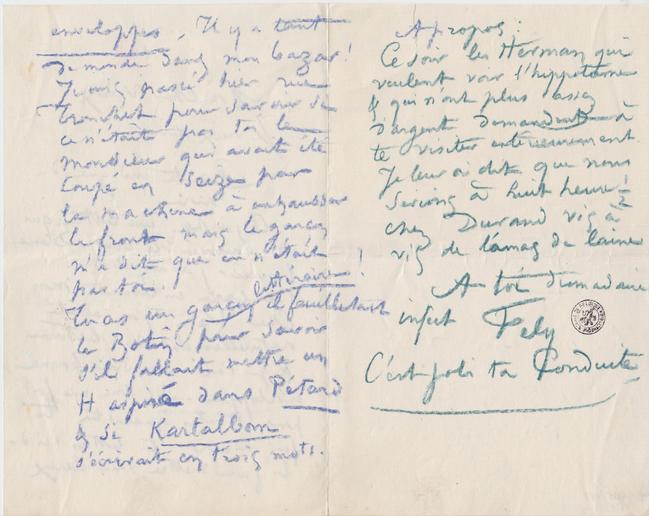 enveloppes. Il y a tant
de monde dans mon bazar !
Je suis passé hier rue
Tronchet pour savoir si
ce n'était pas toi le
monsieur qui avait été
coupé en seize par
la machine à
le front mais le garçon
m'a dit que ce n'était
pas toi.
Tu as un garçon littéraire !
il feuilletait
le Botin pour savoir
s'il fallait mettre un
H aspiré dans Pétard
& si Kartalbom
s'écrivait en trois mots.
A propos :
Ce soir les Herman qui
veulent voir l'hippotame
& qui n'ont plus assez
d'argent demandent à
te visiter
Je leur ai dit que nous
serions à huit heures
chez Durand vis à
vis de l'amas de laine
A toi dromadaire
infect Fely
C'est joli ta Conduite